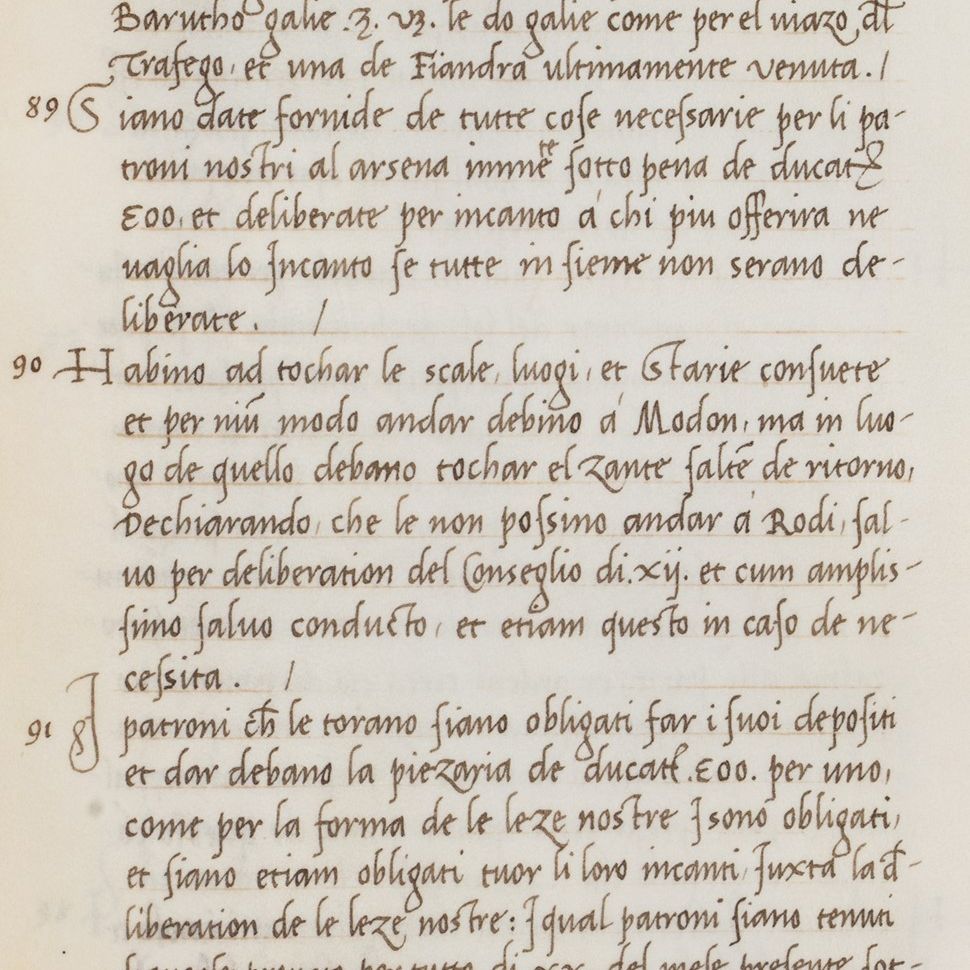 Barutho galie .3. vz. le do galie come per el viazo dl
Trafego, et una de Fiandra ultimamente venuta./
89 Siano date fornide de tutte cose necessarie per li pa-
troni nostri al arsena imme^te sotto pena de ducat
500, et deliberate per incanto á chi piu offerira ne
uaglia lo Incanto se tutte in sieme non serano de-
liberate. /
90 Habino ad tochar le scale, luogi, et Starie consuete
et per niũ modo andar debino á Modon, ma in luo-
go de quello debano tochar el Zante saltẽ de ritorno,
Dechiarando, che le non possino andar á Rodi, sal-
uo per deliberation del Conseglio di .xij. et cum amplis-
simo saluo conducto, et etiam questo in caso de ne-
cessita. /
91 I patroni ch le torano siano obligati far i suoi depositi
et dar debano la piezaria de ducat .500. per uno,
come per la forma de le leze nostre I sono obligati,
et siano etiam obligati tuor li loro incanti, Iuxta la d-
liberation de le leze nostre: I qual patroni siano tenuti
per tutto di xx. del mese presente sot-